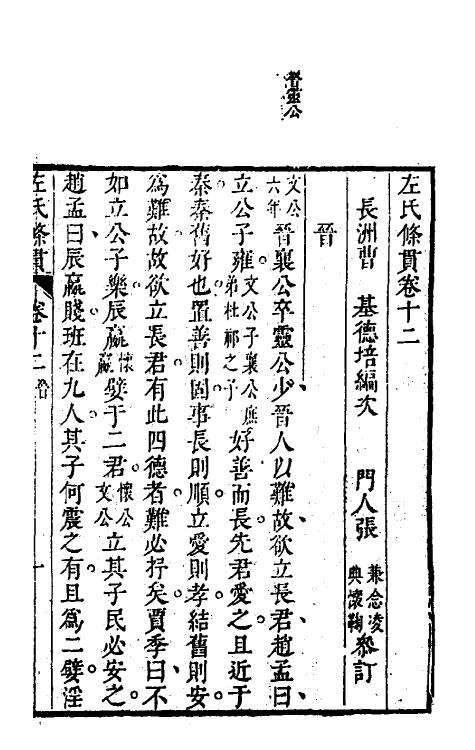 晉靈公
左氏條貫卷十二
長洲曹 基德培編次 門人張 兼念凌 典懷鞠 參訂
晉
文公六年 晉襄公卒靈公少晉人以難故欲立長君趙孟曰
立公子雍 文公子襄公庶弟杜祁之子 好善而長先君愛之且近于
秦秦舊好也置善則固事長則順立愛則孝結舊則安
爲難故故欲立長君有此四德者難必抒矣賈季曰不
如立公子樂辰嬴 懷嬴 嬖于二君 懷公文公 立其子民必安之
趙孟曰辰嬴賤班在九人其子何震之有且爲二嬖淫
左氏條貫 卷十二 晉 一